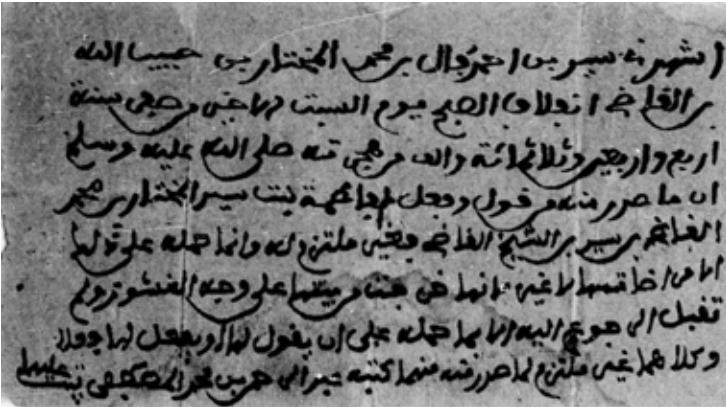 اشهدني سيد بن احمد فال بن محمد المختار بن حبيب الله
بن القاضي انفلاق الصبح يوم السبت صفر سنة
اربع واربعين وثلاثمائة والف من هجرته صلى الله عليه وسلم
ان ما صدر منه من قول وفعل لفاطمة بنت سيد المختار بن محمد
بن سيد بن الشيخ القاضي فغير ملتزم له وانما حمله على
لا غير بانها خرجت من بيتها على وجه النشوز ولم
تقبل الرجوع اليه الا بما حمله على ان يقول لها او يفعل لها
وكلاهما غير ملتزم لما صدر منه منهما كتبه عبد الرحمن بن محمد